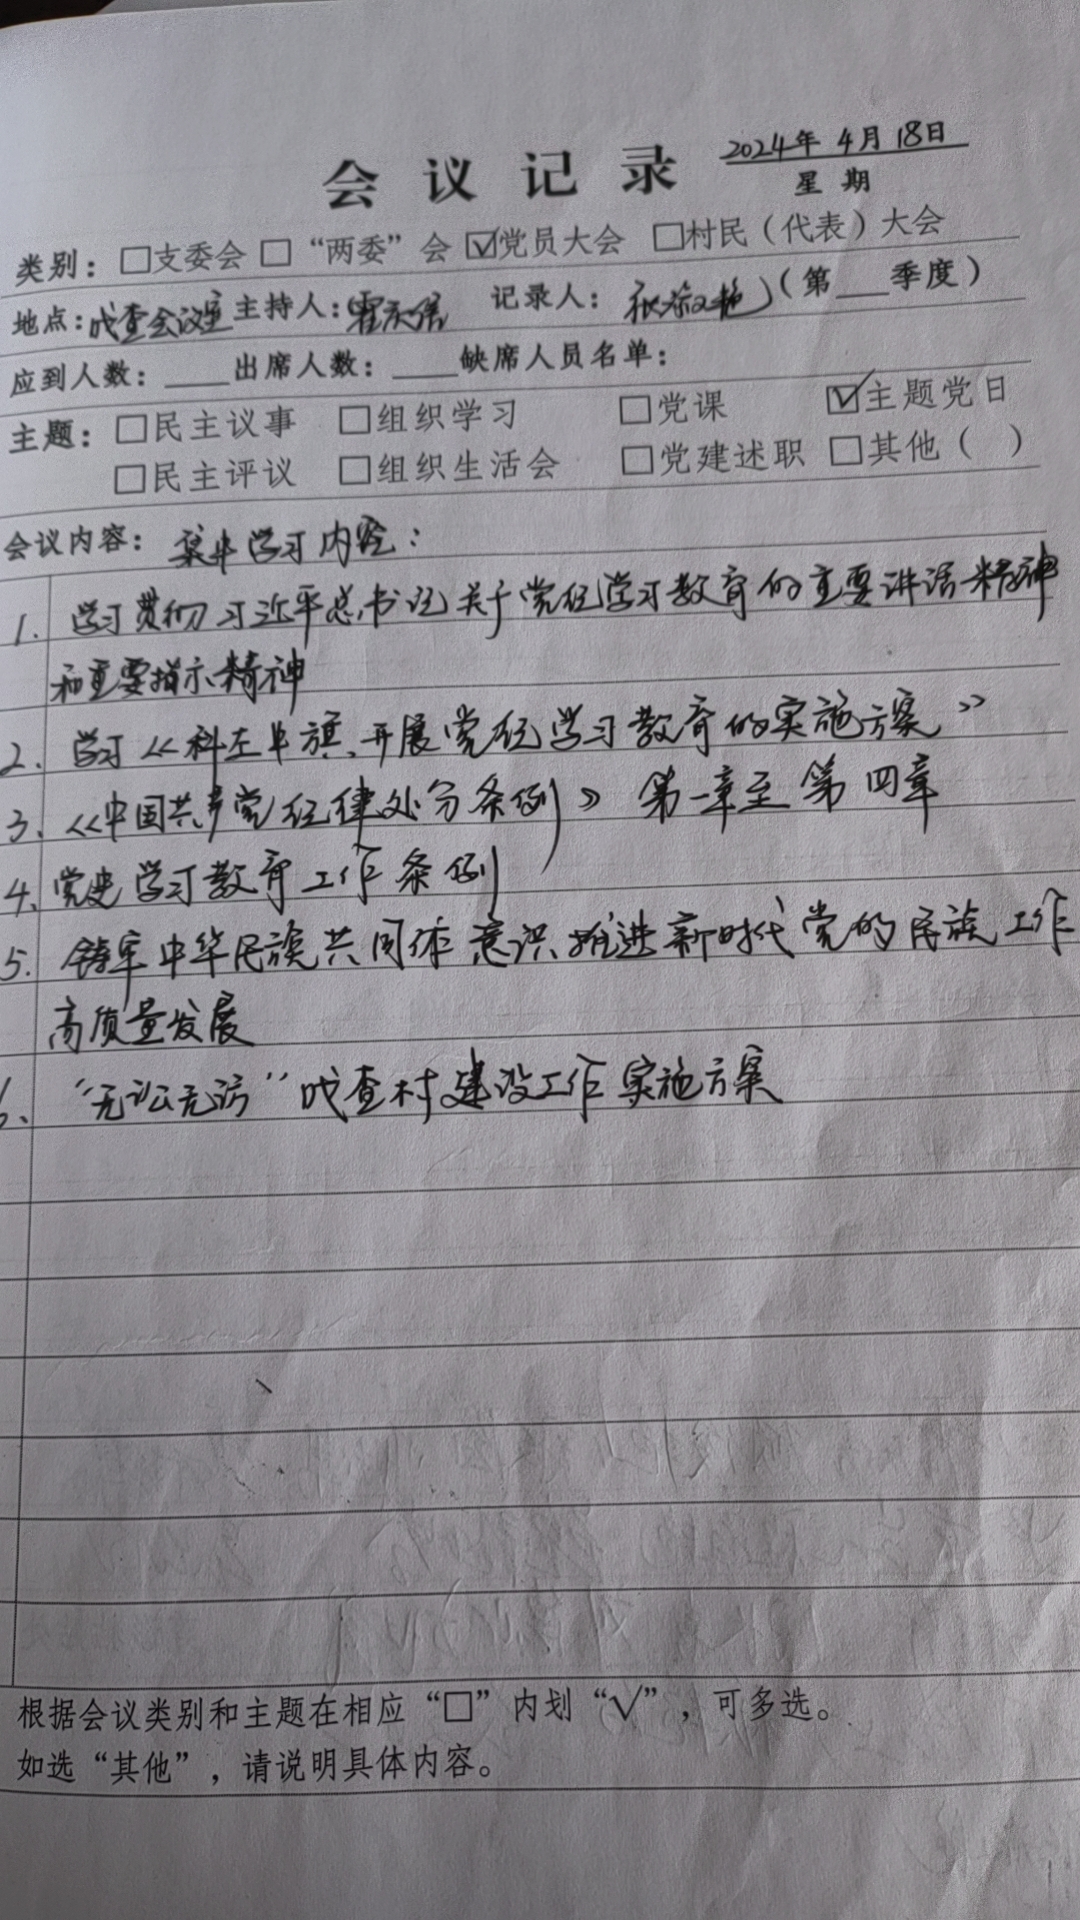 2024年 4月 18日
会议记录
星期
类别：□支委会 □“两委”会 ☑党员大会 □村民（代表）大会
地点：代查会议室 主持人： 记录人： （第___季度）
应到人数：____出席人数：____缺席人员名单：
主题：□民主议事 □组织学习 □党课 ☑主题党日
□民主评议 □组织生活会 □党建述职 □其他（ ）
会议内容：集中学习内容：
1. 学习贯彻习近平总书记关于党纪学习教育的重要讲话精神
和重要指示精神
2. 学习《科左中旗、开展党纪学习教育的实施方案》
3、《中国共产党纪律处分条例》第一章至第四章
4、党史学习教育工作条例
5. 铸牢中华民族共同体意识推进新时代党的民族工作
高质量发展
6、“无讼无访”代查村建设工作实施方案
根据会议类别和主题在相应“□”内划“√”，可多选。
如选“其他”，请说明具体内容。